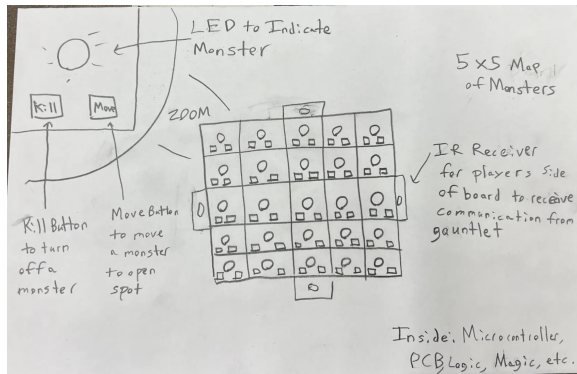 LED to Indicate
Monster
Kill
Move
ZOOM
5x5 Map
of Monsters
IR Receiver
for players side
of board to receive
communication from
gauntlet
Kill Button
to turn
off a
monster
Move Button
to move
a monster
to open
spot
Inside: Microcontroller,
PCB, Logic, Magic, etc.